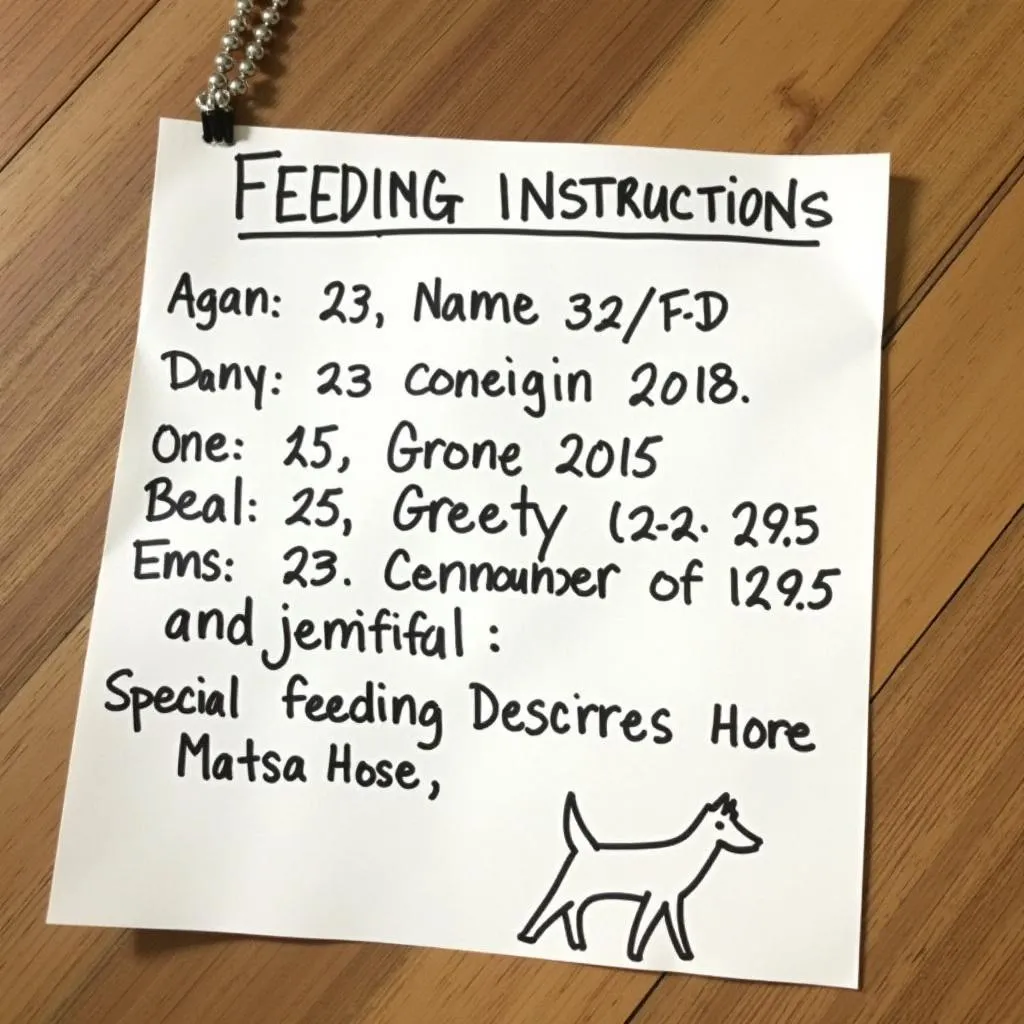 FEEDING INSTRUCTIONS
Agan: 23, Name 32/F-D
Dany: 23 coneigin 2018.
One: 25, Grone 2015
Beal: 25, Greety 12-2. 29.5
Ems: 23. of 129.5
and jemififul :
Special feeding Descirres Hore
Matsa Hose,